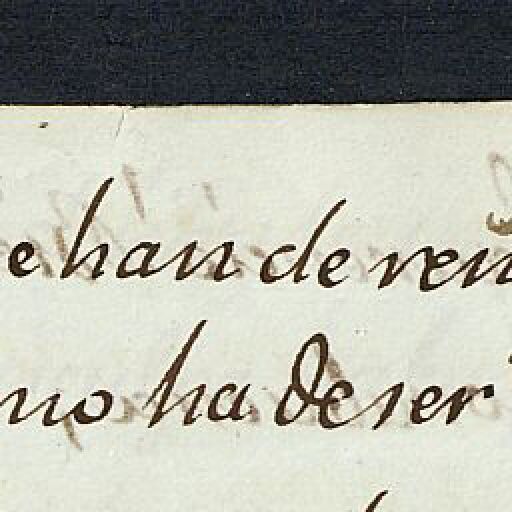 e han de ren
no ha de ser